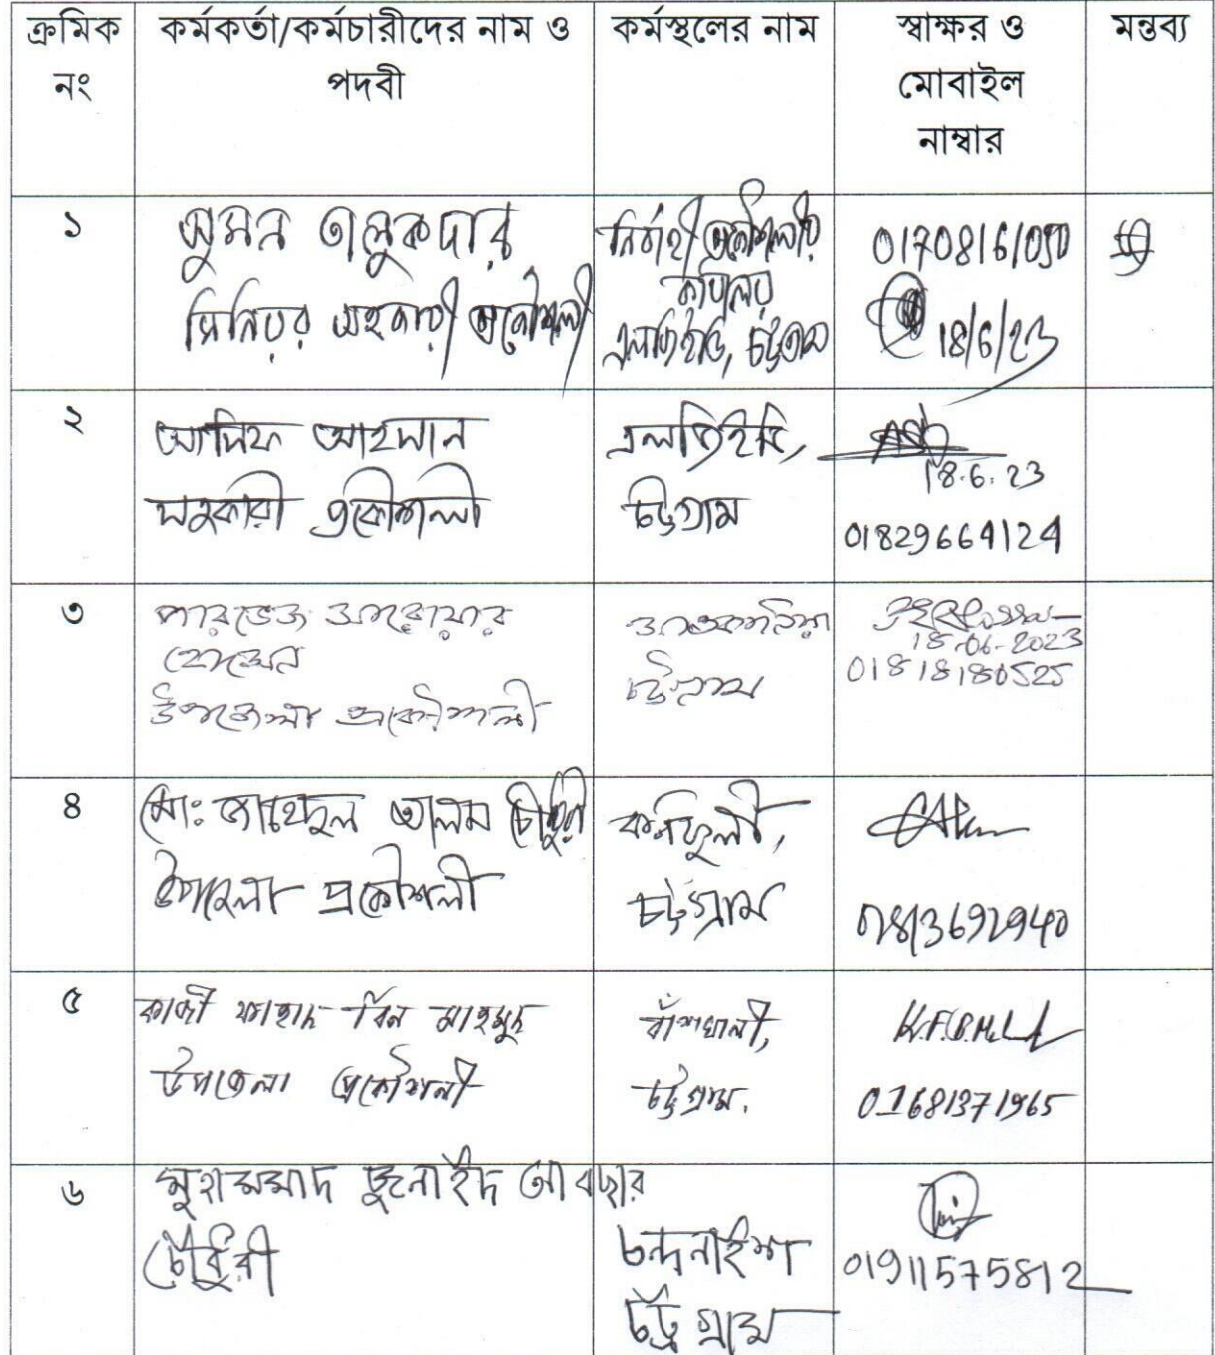 ক্রমিক নং
কর্মকর্তা/কর্মচারীদের নাম ও পদবী
কর্মস্থলের নাম
স্বাক্ষর ও মোবাইল নাম্বার
মন্তব্য
১
সুমন তালুকদার
সিনিয়র সহকারী প্রকৌশলী
নির্বাহী প্রকৌশলীর
কার্যালয়
এলজিইডি, চট্টগ্রাম
01708161050
18/6/23
২
আসিফ আহসান
সহকারী প্রকৌশলী
এলজিইডি,
চট্টগ্রাম
18.6.23
01829664124
৩
পারভেজ সারোয়ার
হোসেন
উপজেলা প্রকৌশলী
সাতকানিয়া
চট্টগ্রাম
18-06-2023
01818180525
৪
মোঃ জাহেদুল আলম চৌধুরী
উপজেলা প্রকৌশলী
কর্নফুলী,
চট্টগ্রাম
01813692940
৫
কাজী ফাহাদ বিন মাহমুদ
উপজেলা প্রকৌশলী
বাঁশখালী,
চট্টগ্রাম.
01681371965
৬
মুহাম্মাদ জুনাইদ আবছার
চৌধুরী
চন্দনাইশ
চট্টগ্রাম
01911575812